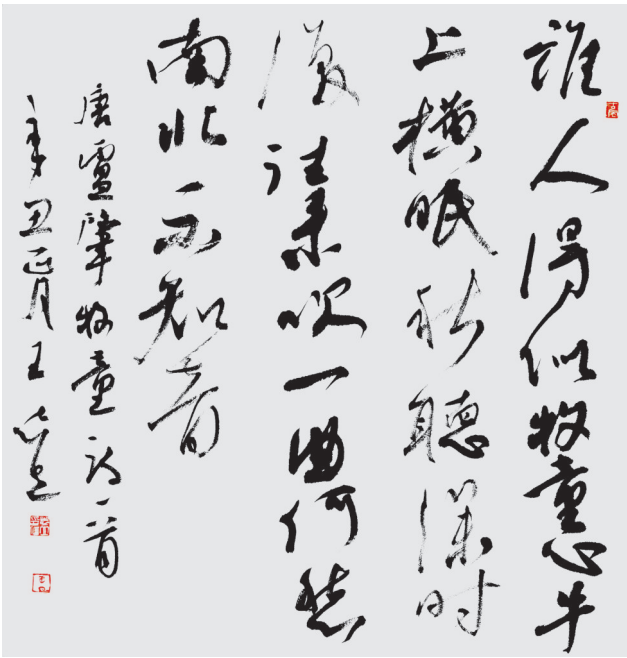 谁人得似牧童心牛
上横眠秋聽深时
復往来吹一曲何愁
南北不知音
唐盧肇牧童诗一首
辛丑正月王